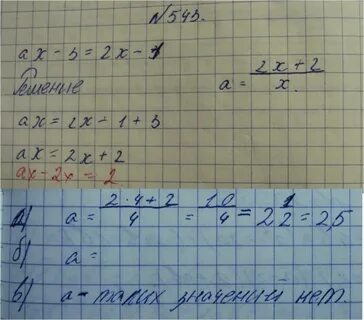 № 543.
ax - 3 = 2x - 1
Решение
a = (2x + 2)/x.
ax = 2x - 1 + 3
ax = 2x + 2
ax - 2x = 2
а) a = (2·4+2)/4 = 10/4 = 2 1/2 = 2,5
б) a =
в) a - таких значений нет.